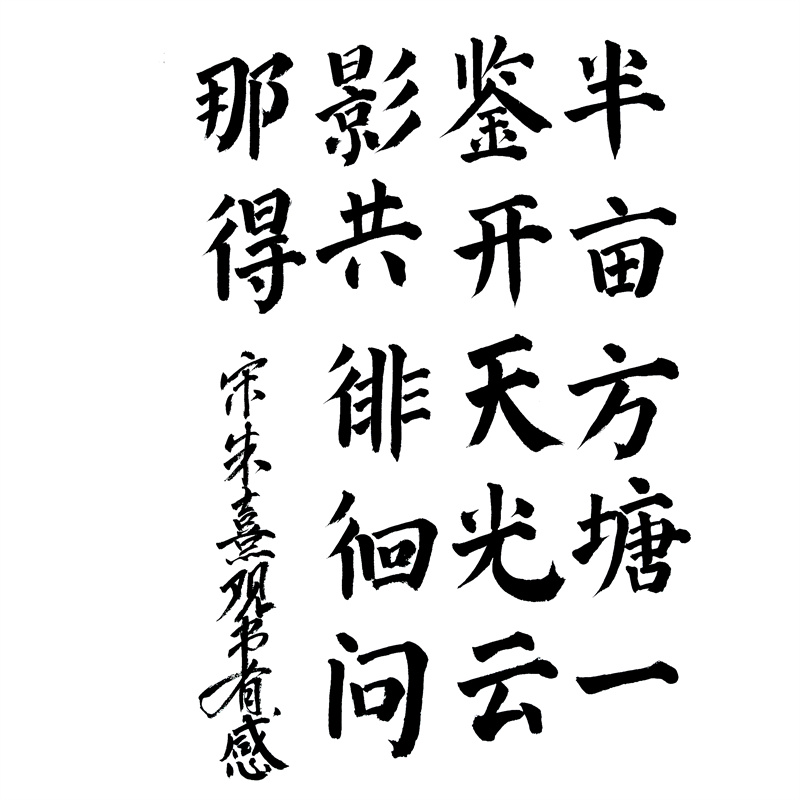 半亩方塘一
鉴开天光云
影共徘徊问
那得
宋朱熹观书有感